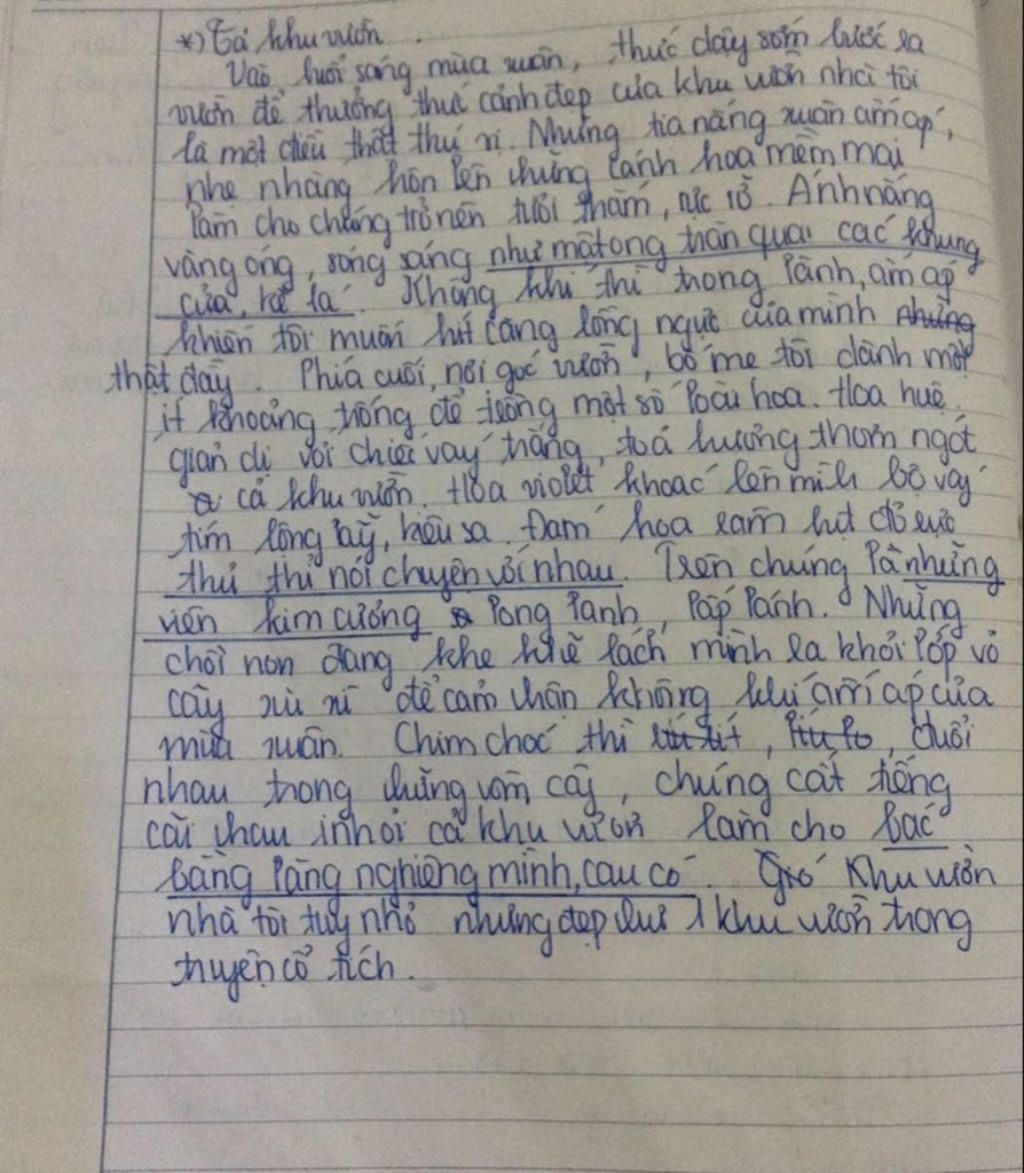 *) Tả khu vườn.
Vào buổi sáng mùa xuân, thức dậy sớm bước ra
vườn để thưởng thức cảnh đẹp của khu vườn nhà tôi
là một điều thật thú vị. Những tia nắng xuân ấm áp,
nhẹ nhàng hôn lên những cánh hoa mềm mại
làm cho chúng trở nên tươi thắm, rực rỡ. Ánh nắng
vàng óng, sóng sáng như mật ong tràn qua các khung
cửa, kẽ lá. Không khí thì trong lành, ấm áp
khiến tôi muốn hít căng lồng ngực của mình những
thật đầy. Phía cuối, nơi góc vườn, bố mẹ tôi dành một
ít khoảng trống để trồng một số loài hoa. Hoa huệ
giản dị với chiếc váy trắng, toả hương thơm ngát
cả khu vườn. Hoa violet khoác lên mình bộ váy
tím lộng lẫy, kiêu sa. Đám hoa râm bụt đỏ rực
thủ thỉ nói chuyện với nhau. Trên chúng là những
viên kim cương long lanh, lấp lánh. Những
chồi non đang khe khẽ tách mình ra khỏi lớp vỏ
cây xù xì để cảm nhận không khí ấm áp của
mùa xuân. Chim chóc thì ríu rít, líu lo, đuổi
nhau trong những vòm cây, chúng cất tiếng
cãi nhau inh ỏi cả khu vườn làm cho bác
bằng lăng nghiêng mình, cau có. Gió Khu vườn
nhà tôi tuy nhỏ nhưng đẹp như 1 khu vườn trong
truyện cổ tích.